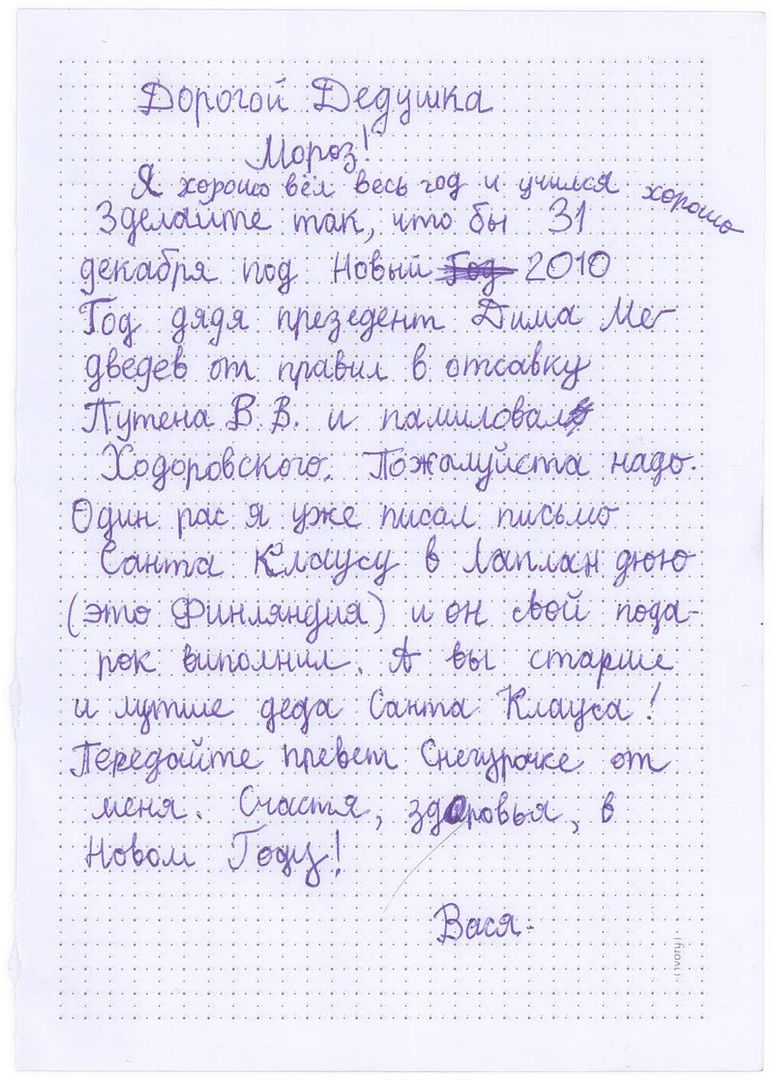 Дорогой Дедушка
Мороз!
Я хорошо вёл весь год и учился хорошо
Зделайте так, что бы 31
декабря под Новый Год 2010
Год дядя презедент Дима Ме-
дведев от правил в отсавку
Путена В.В. и памиловал
Ходоровского. Пожалуйста надо.
Один рас я уже писал письмо
Санта Клаусу в Лаплан дюю
(это Финляндия) и он свой пода-
рок виполнил. А вы старше
и лутше деда Санта Клауса!
Передайте превет Снегурочке от
меня. Счастя, здоровья, в
Новом Году!
Вася.
(ivory)